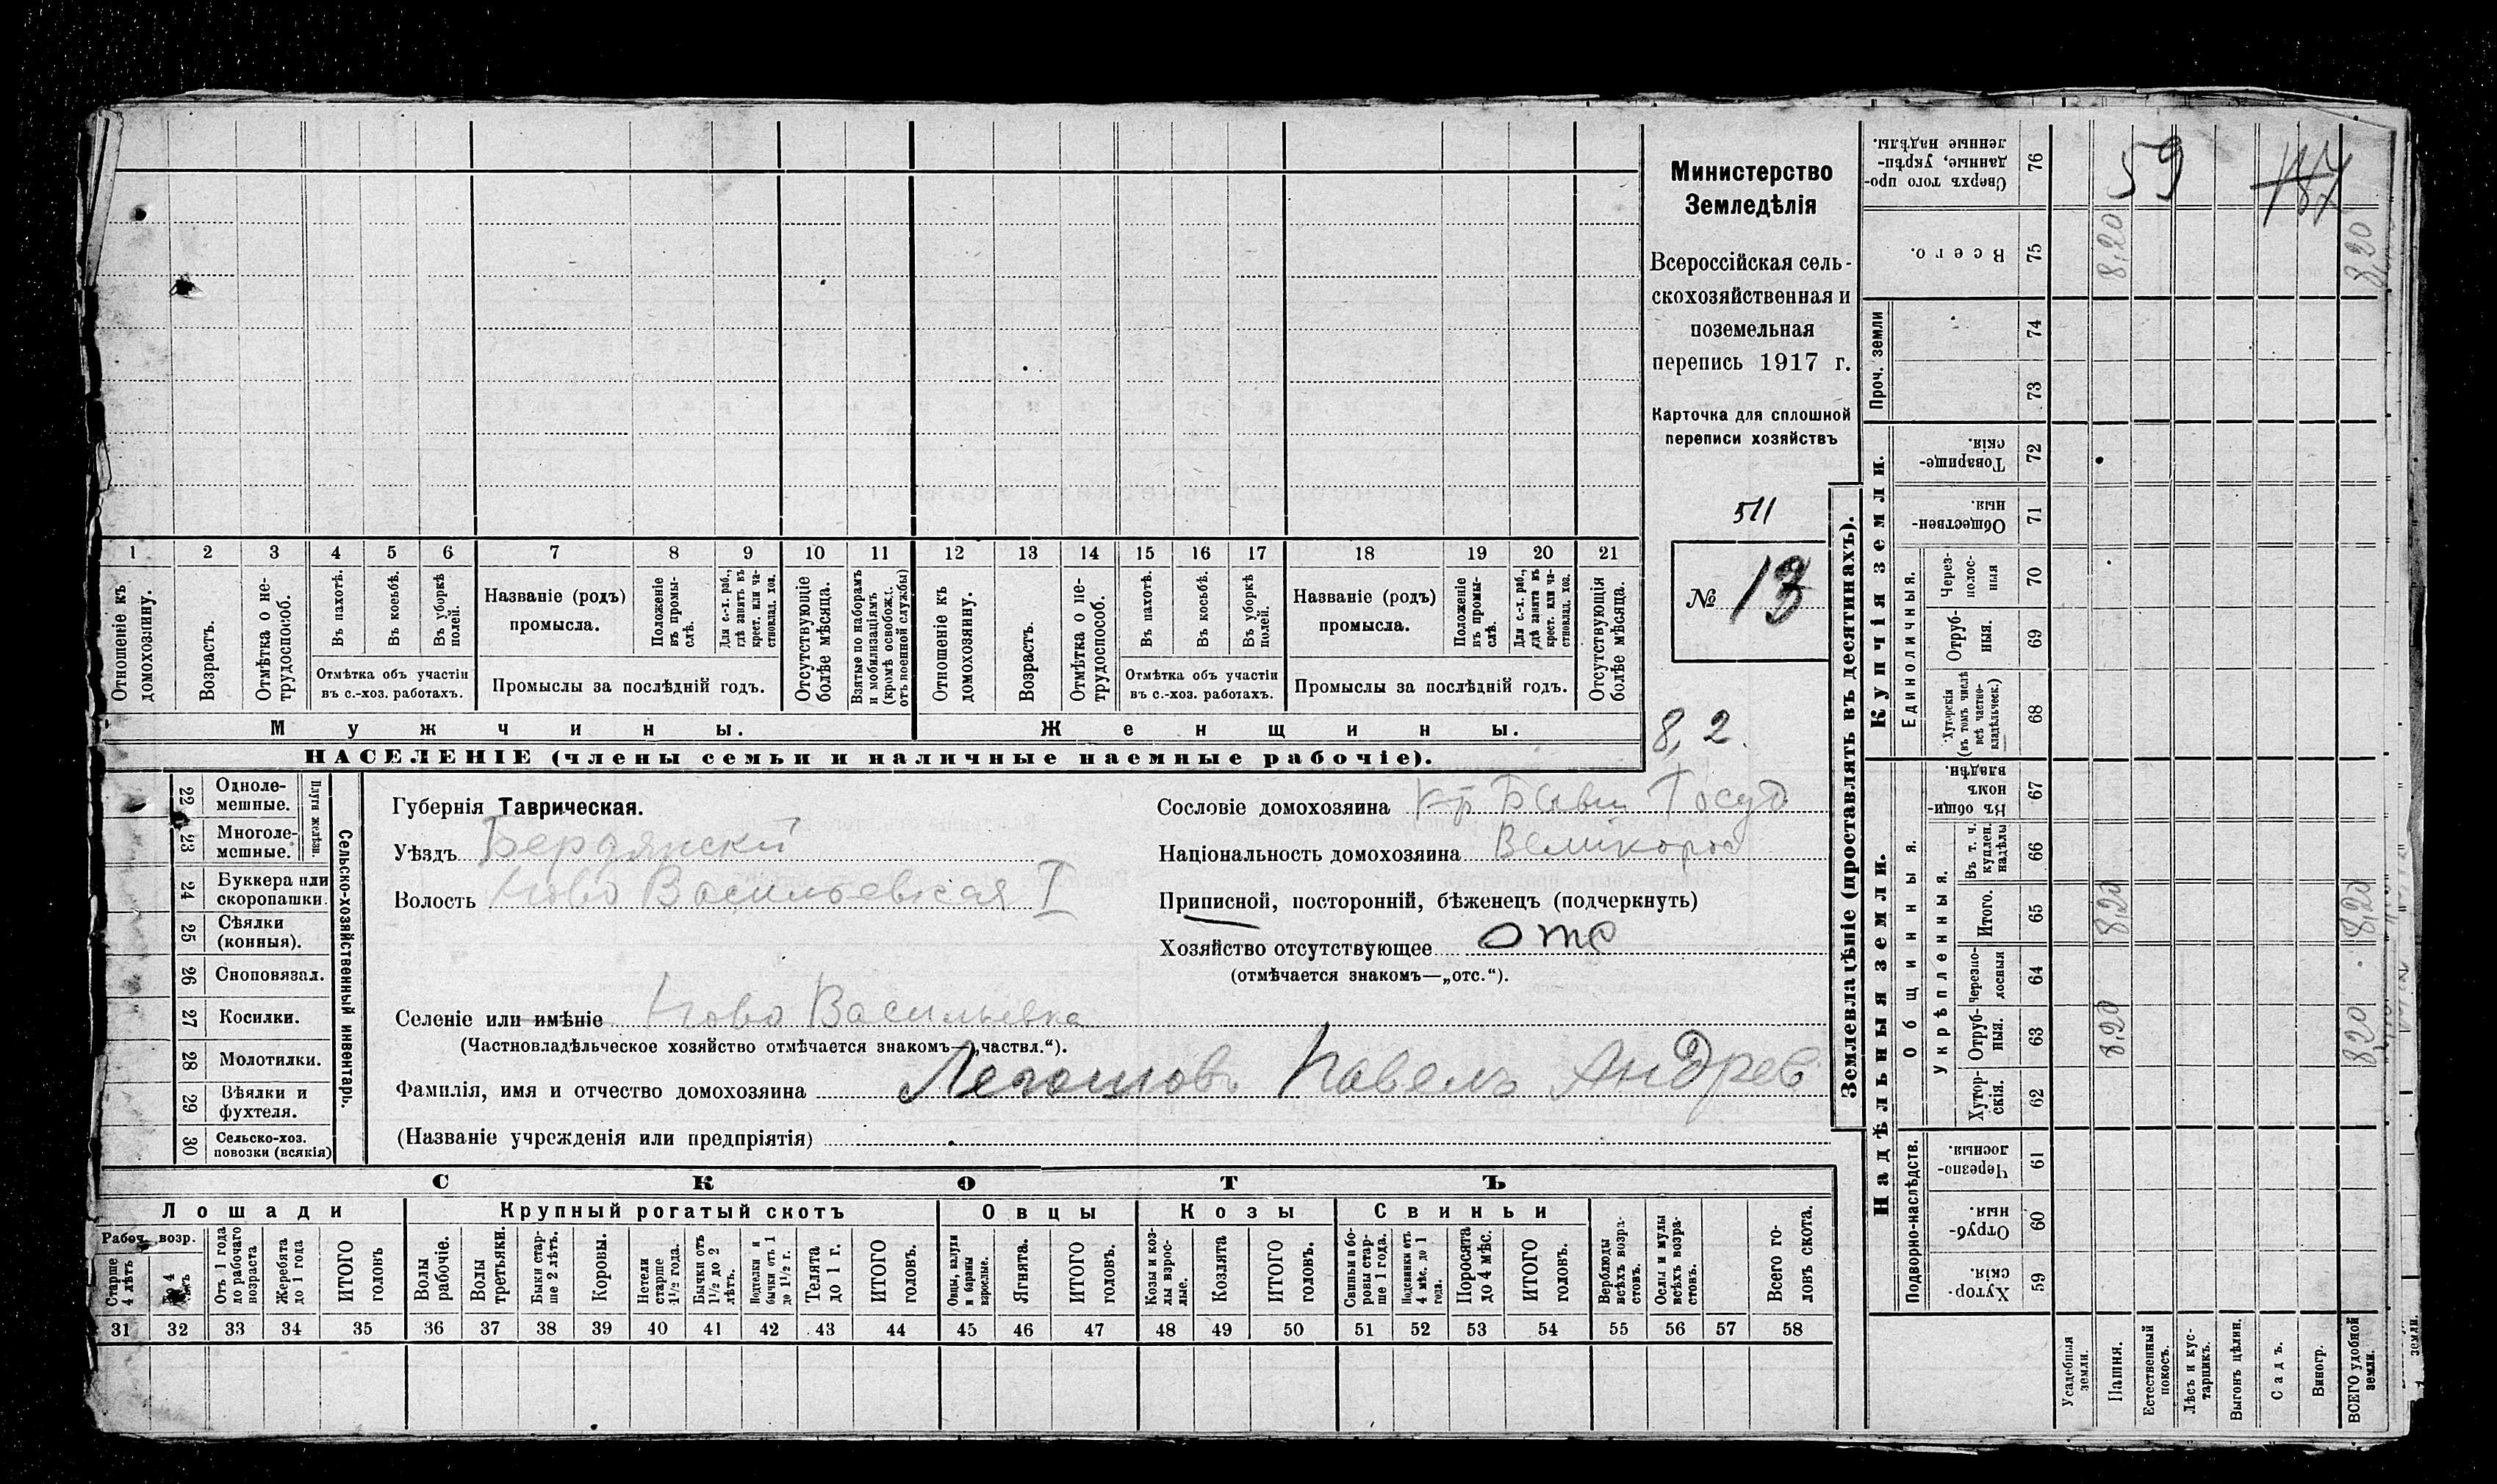 Министерство
Земледѣлія
Всероссійская сель-
скохозяйственная и
поземельная
перепись 1917 г.
Карточка для сплошной
переписи хозяйствъ
511
№ 13
8,2.
1 2 3 4 5 6 7 8 9 10 11 12 13 14 15 16 17 18 19 20 21
Отношеніе къ домохозяину.
Возрастъ.
Отмѣтка о не-трудоспособ.
Въ пахотѣ.
Въ косьбѣ.
Въ уборкѣ полей.
Отмѣтка объ участіи
въ с.-хоз. работахъ.
Названіе (родъ)
промысла.
Положеніе въ промы-слѣ.
Для с.-х. раб., гдѣ занятъ въ крест. или ча-стновлад. хоз.
Промыслы за послѣдній годъ.
Отсутствующіе болѣе мѣсяца.
Взятые по наборамъ и мобилизаціямъ (кромѣ освобожд. отъ военной службы)
Отношеніе къ домохозяину.
Возрастъ.
Отмѣтка о не-трудоспособ.
Въ пахотѣ.
Въ косьбѣ.
Въ уборкѣ полей.
Отмѣтка объ участіи
въ с.-хоз. работахъ.
Названіе (родъ)
промысла.
Положеніе въ промы-слѣ.
Для с.-х. раб., гдѣ занята въ крест. или ча-стновлад. хоз.
Промыслы за послѣдній годъ.
Отсутствующія болѣе мѣсяца.
Мужчины.
Женщины.
НАСЕЛЕНІЕ (члены семьи и наличные наемные рабочіе).
22 Одноле-мешные.
23 Многоле-мешные.
Плуги желѣзн.
24 Буккера или скоропашки.
25 Сѣялки (конныя).
26 Сноповязал.
27 Косилки.
28 Молотилки.
29 Вѣялки и фухтеля.
30 Сельско-хоз. повозки (всякія)
Сельско-хозяйственный инвентарь.
Губернія Таврическая.
Уѣздъ Бердянскій
Волость Ново Васильевская I
Селеніе или имѣніе Ново Васильевка
(Частновладѣльческое хозяйство отмѣчается знакомъ—„частвл.“).
Фамилія, имя и отчество домохозяина Легошовъ Павелъ Андрев
(Названіе учрежденія или предпріятія)
Сословіе домохозяина Кр Бывш Госуд
Національность домохозяина Великорос
Приписной, посторонній, бѣженецъ (подчеркнуть)
Хозяйство отсутствующее отс
(отмѣчается знакомъ—„отс.“).
СКОТЪ
Лошади
Крупный рогатый скотъ
Овцы
Козы
Свиньи
Рабоч. возр.
Старше 4 лѣтъ
Отъ 1 года до рабочаго возраста
Жеребята до 1 года
ИТОГО головъ
Волы рабочіе.
Волы третьяки.
Быки стар-ше 2 лѣтъ.
Коровы.
Нетели старше 1½ года.
Бычки отъ 1½ до 2 лѣтъ.
Подтелки и бычки отъ 1 до 1½ г.
Телята до 1 г.
ИТОГО головъ.
Овцы, валухи и бараны взрослые.
Ягнята.
ИТОГО головъ.
Козы и коз-лы взрос-лые.
Козлята
ИТОГО головъ.
Свиньи и бо-ровы стар-ше 1 года.
Подсвинки отъ 4 мѣс. до 1 года.
Поросята до 4 мѣс.
ИТОГО головъ.
Верблюды всѣхъ возра-стовъ.
Ослы и мулы всѣхъ возра-стовъ.
Всего го-ловъ скота.
31 32 33 34 35 36 37 38 39 40 41 42 43 44 45 46 47 48 49 50 51 52 53 54 55 56 57 58
Землевладѣніе (проставлять въ десятинахъ).
Надѣльныя земли.
Купчія земли.
Проч. земли
Подворно-наслѣдств.
Общинныя.
Укрѣпленныя.
Единоличныя.
76 Сверхъ того про-данные, укрѣп-ленные надѣлы.
75 Всего. 8,20 8,20
74
73
72 Товарище-скія.
71 Обществен-ныя
70 Через-полос-ныя
69 Отруб-ныя.
68 Хуторскія (въ томъ числѣ всѣ частно-владѣльческ.)
67 Въ общи-номъ владѣн.
66 Въ т. ч. куплен. надѣлы
65 Итого. 8,20 8,20
64 Черезпо-лосныя
63 Отруб-ныя. 8,20 8,20
62 Хутор-скія.
61 Черезпо-лосныя.
60 Отруб-ныя.
59 Хутор-скія.
Усадебныя земли.
Пашня.
Естественный покосъ.
Лѣсъ и кус-тарникъ.
Выгонъ цѣлин.
Садъ.
Виногр.
ВСЕГО удобной земли.
земли.
59